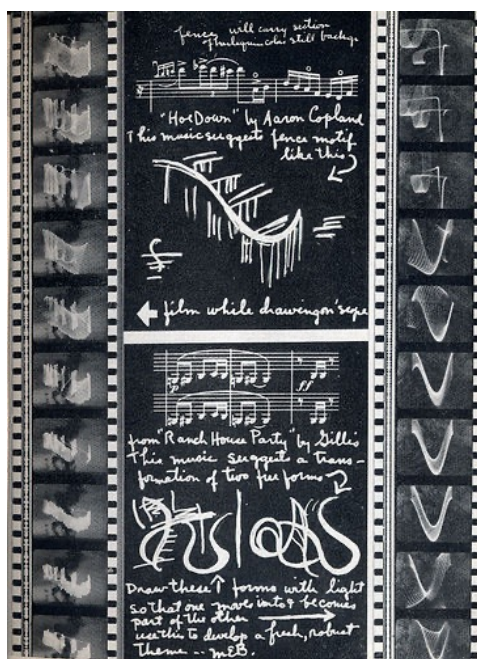 fence will carry section
still backgr.
"HoeDown" by Aaron Copland
This music suggests fence motif
like this
film while drawing on 'scope
p
ff
from "Ranch House Party" by Gillis
This music suggests a trans-
formation of two free forms
Draw these forms with light
so that one moves into & becomes
part of the other
use this to develop a fresh, robust
theme -- MEB.